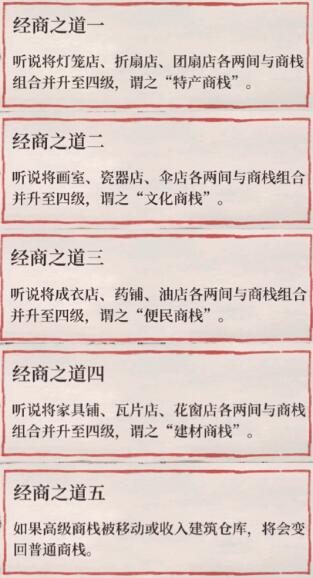 经商之道一
听说将灯笼店、折扇店、团扇店各两间与商栈
组合并升至四级，谓之“特产商栈”。
经商之道二
听说将画室、瓷器店、伞店各两间与商栈组合
并升至四级，谓之“文化商栈”。
经商之道三
听说将成衣店、药铺、油店各两间与商栈组合
并升至四级，谓之“便民商栈”。
经商之道四
听说将家具铺、瓦片店、花窗店各两间与商栈
组合并升至四级，谓之“建材商栈”。
经商之道五
如果高级商栈被移动或收入建筑仓库，将会变
回普通商栈。